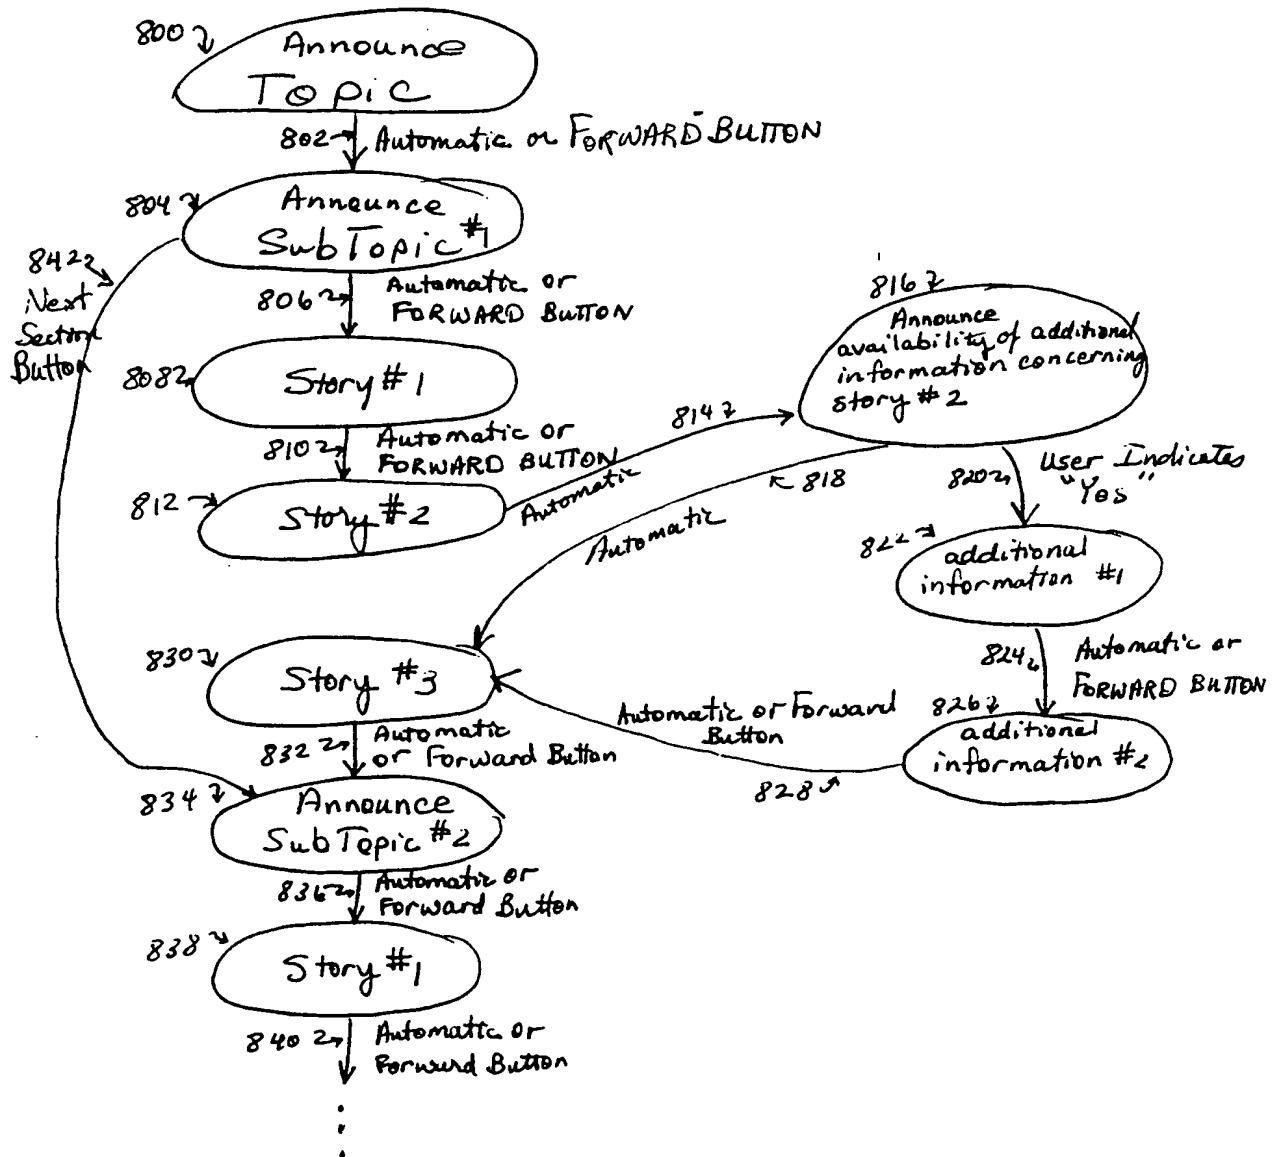 800
Announce
Topic
802 Automatic or FORWARD BUTTON
804
Announce
SubTopic #1
842
Next
Section
Button
806
Automatic or
FORWARD BUTTON
808
Story #1
810
Automatic or
FORWARD BUTTON
812
Story #2
814
Automatic
816
Announce
availability of additional
information concerning
story #2
818
Automatic
820
User Indicates
"Yes"
822
additional
information #1
824
Automatic or
FORWARD BUTTON
826
additional
information #2
828
Automatic or Forward
Button
830
Story #3
832
Automatic
or Forward Button
834
Announce
SubTopic #2
836
Automatic or
Forward Button
838
Story #1
840
Automatic or
Forward Button